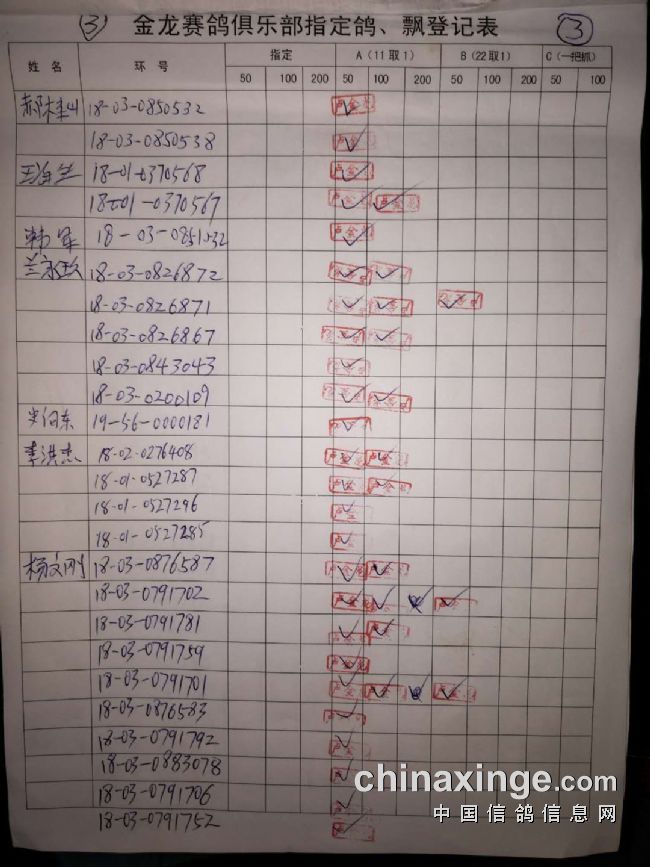 ③ 金龙赛鸽俱乐部指定鸽、飘登记表 ③
姓名 环号 指定 A(11取1) B(22取1) C(一把抓)
50 100 200 50 100 200 50 100 50 100
18-03-0850532
18-03-0850538
18-01-0370568
18-01-0370567
韩军 18-03-0851032
兰永跃 18-03-0826872
18-03-0826871
18-03-0826867
18-03-0843043
18-03-0200109
19-56-0000181
李洪杰 18-02-0276408
18-01-0527287
18-01-0527296
18-01-0527285
杨文刚 18-03-0876587
18-03-0791702
18-03-0791781
18-03-0791759
18-03-0791701
18-03-0876583
18-03-0791792
18-03-0883078
18-03-0791706
18-03-0791752
chinaxinge.com
中国信鸽信息网